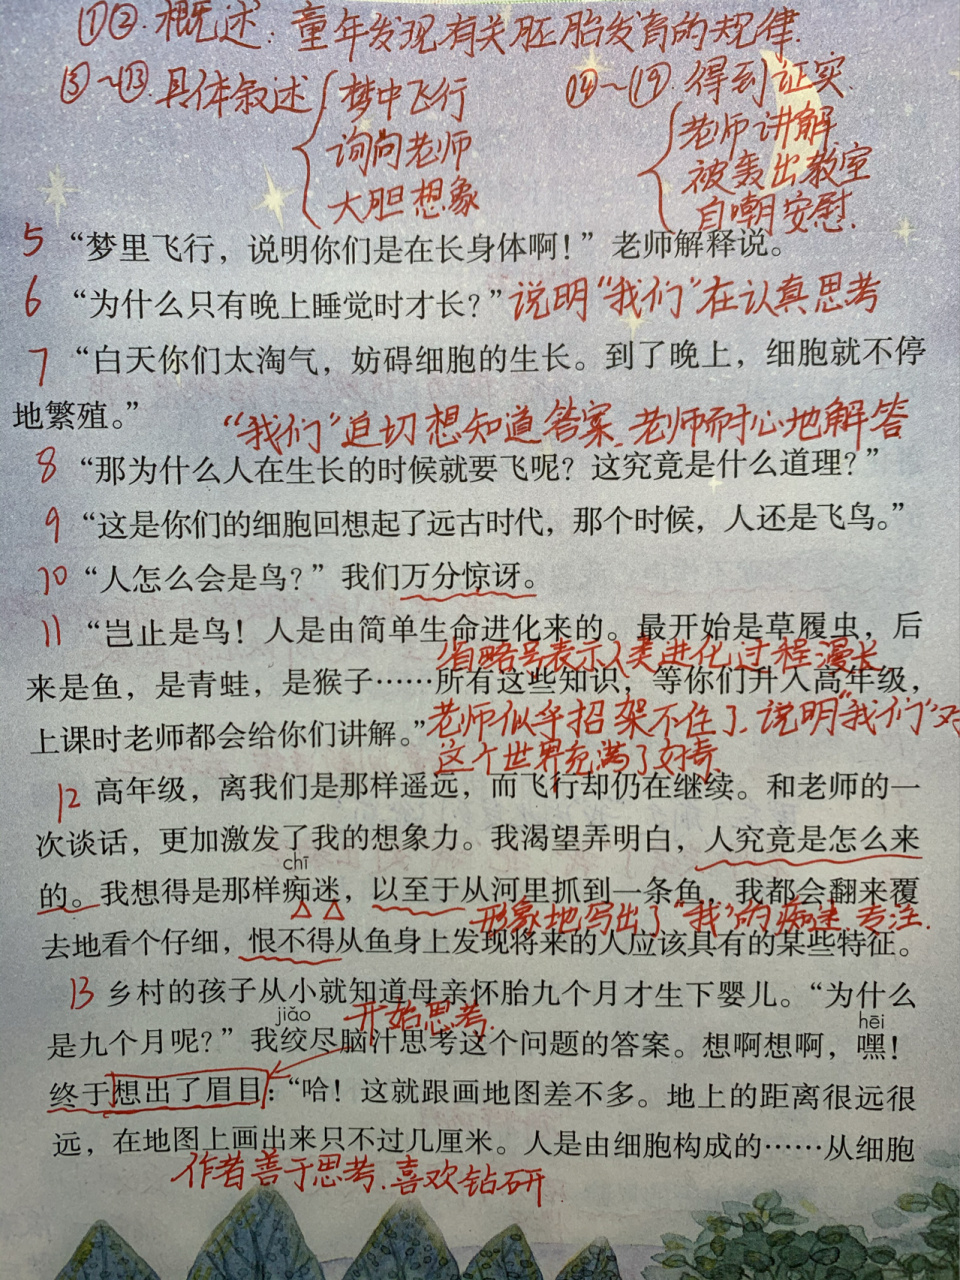 ①②.概述：童年发现有关胚胎发育的规律.
③~⑬.具体叙述 梦中飞行 ⑭~⑲.得到证实.
询问老师 老师讲解
大胆想象 被轰出教室
自嘲安慰.
5 “梦里飞行，说明你们是在长身体啊！”老师解释说。
6 “为什么只有晚上睡觉时才长？”说明“我们”在认真思考
7 “白天你们太淘气，妨碍细胞的生长。到了晚上，细胞就不停
地繁殖。”
“我们”迫切想知道答案.老师耐心地解答
8 “那为什么人在生长的时候就要飞呢？这究竟是什么道理？”
9 “这是你们的细胞回想起了远古时代，那个时候，人还是飞鸟。”
10 “人怎么会是鸟？”我们万分惊讶。
11 “岂止是鸟！人是由简单生命进化来的。最开始是草履虫，后
省略号表示人类进化过程漫长
来是鱼，是青蛙，是猴子……所有这些知识，等你们升入高年级，
老师似乎招架不住了.说明“我们”对
上课时老师都会给你们讲解。”
这个世界充满了好奇.
12 高年级，离我们是那样遥远，而飞行却仍在继续。和老师的一
次谈话，更加激发了我的想象力。我渴望弄明白，人究竟是怎么来
chī
的。我想得是那样痴迷，以至于从河里抓到一条鱼，我都会翻来覆
形象地写出了“我”的痴迷.专注.
去地看个仔细，恨不得从鱼身上发现将来的人应该具有的某些特征。
13 乡村的孩子从小就知道母亲怀胎九个月才生下婴儿。“为什么
jiǎo 开始思考. hēi
是九个月呢？”我绞尽脑汁思考这个问题的答案。想啊想啊，嘿！
终于想出了眉目：“哈！这就跟画地图差不多。地上的距离很远很
远，在地图上画出来只不过几厘米。人是由细胞构成的……从细胞
作者善于思考.喜欢钻研.